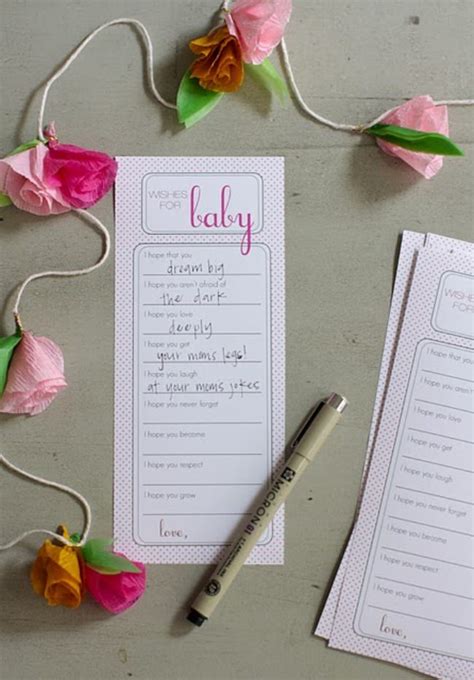 WISHES FOR baby
I hope that you
dream big
I hope you aren't afraid of
the dark
I hope you love
deeply
I hope you get
your moms legs!
I hope you laugh
at your moms jokes
I hope you never forget
I hope you become
I hope you respect
I hope you grow
love,
MICRON 8
WISHES
FOR
I hope that you
I hope you aren't
I hope you love
I hope you get
I hope you laugh
I hope you never forget
I hope you become
I hope you respect
I hope you grow
love,